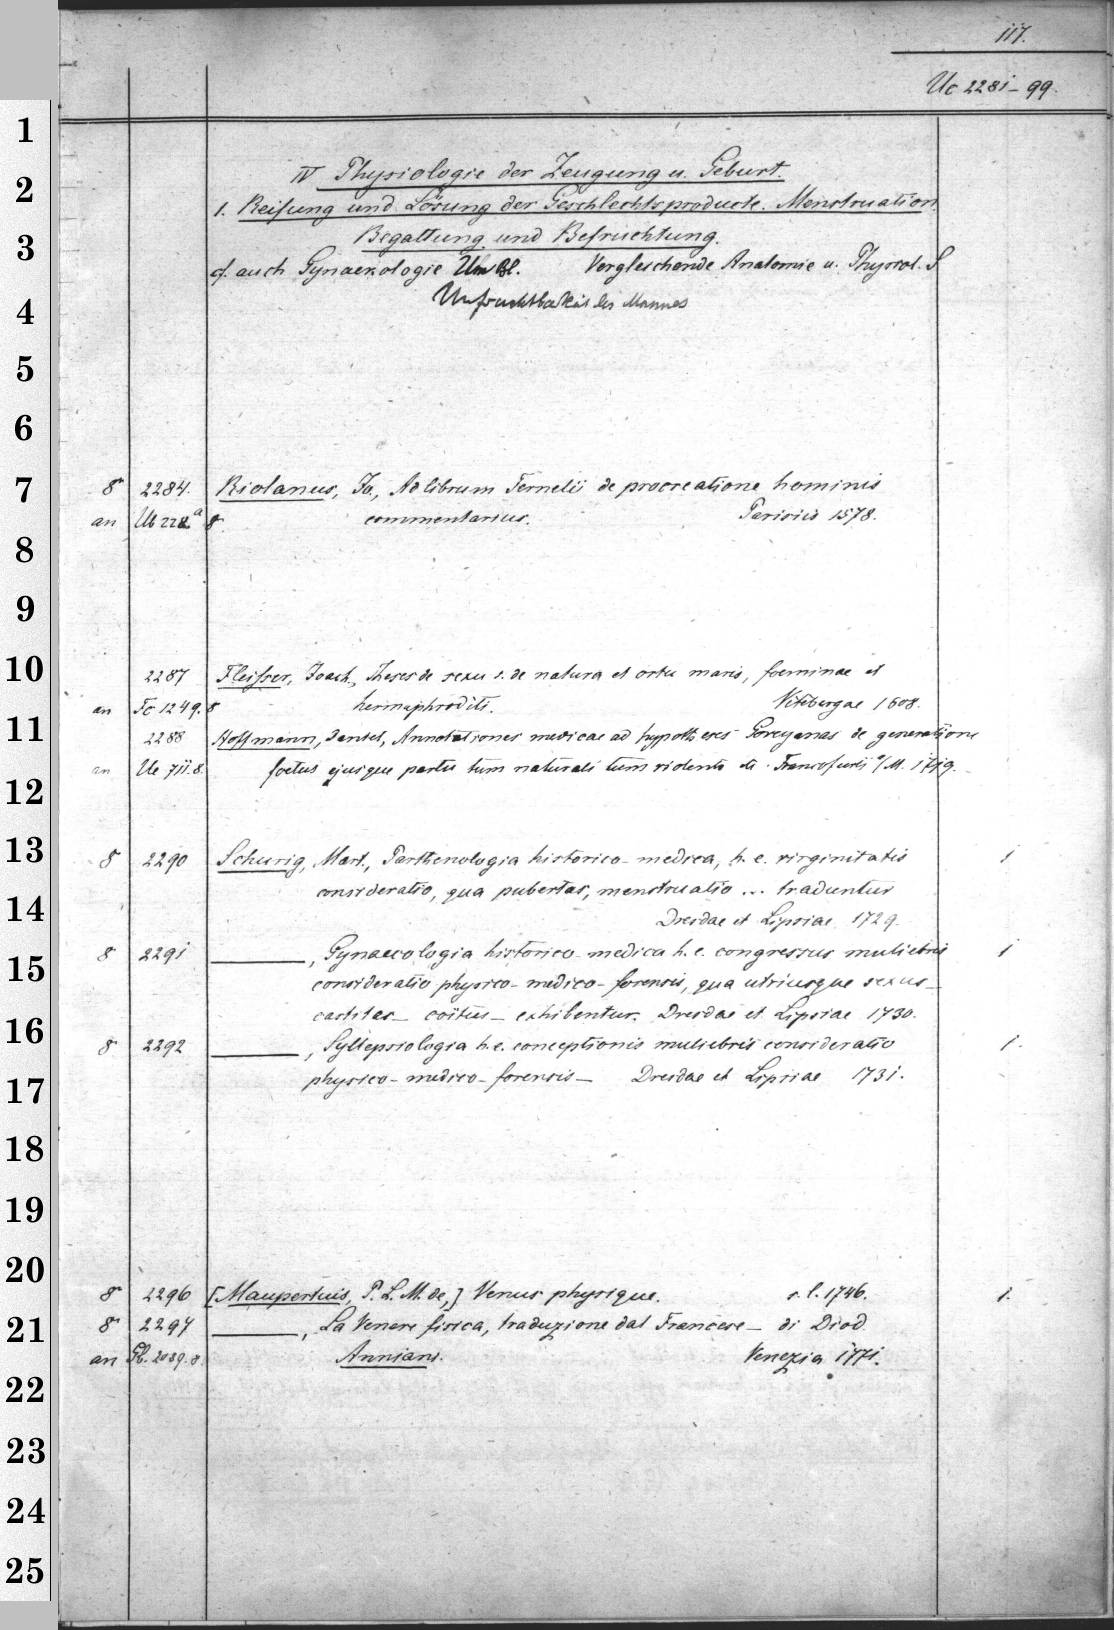 117.
Uc 2281-99.
IV Physiologie der Zeugung u. Geburt.
1. Reifung und Lösung der Geschlechtsproducte. Menstruation
Begattung und Befruchtung.
cf. auch Gynaekologie Um Bl. Vergleichende Anatomie u. Physiol. S
Unfruchtbarkeit des Mannes
8° 2284. Riolanus, Jo., Ad librum Fernelii de procreatione hominis
an Ub 8 commentarius. Parisiis 1578.
2287 Fleisser, Joach., Theses de sexu s. de natura et ortu maris, foeminae et
an Fc 1249. 8 hermaphroditi. Vitebergae 1608.
2288 Hoffmann, Daniel, Annotationes medicae ad hypotheses Goveyanas de generatione
an Ue 711. 8. foetus ejusque partu tum naturali tum violento etc. Francofurti a/M. 1719.
8 2290 Schurig, Mart., Parthenologia historico-medica, h. e. virginitatis 1
consideratio, qua pubertas, menstruatio ... traduntur
Dresdae et Lipsiae 1729.
8 2291 ———, Gynaecologia historico-medica h. e. congressus muliebris 1
consideratio physico-medico-forensis, qua utriusque sexus—
castitas— coitus— exhibentur. Dresdae et Lipsiae 1730.
8 2292 ———, Syllepsiologia h. e. conceptionis muliebris consideratio 1.
physico-medico-forensis— Dresdae et Lipsiae 1731.
8° 2296 [Maupertuis, P. L. M. de,] Venus physique. s. l. 1746. 1.
8° 2297 ———, La Venere fisica, traduzione dal Francese— di Diod.
an 2039. 8. Anniani. Venezia 1771.
1
2
3
4
5
6
7
8
9
10
11
12
13
14
15
16
17
18
19
20
21
22
23
24
25